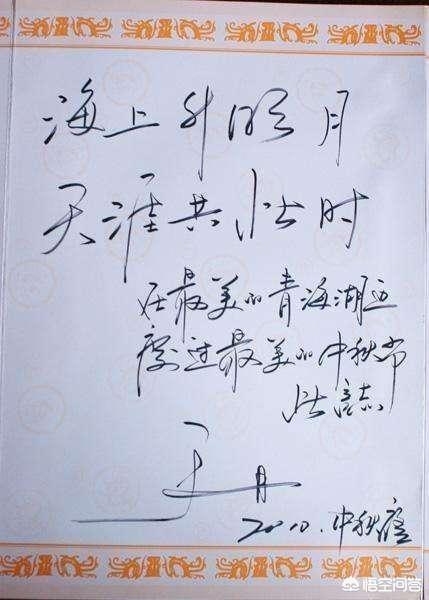 海上升明月
天涯共此时
在最美的青海湖边
度过最美的中秋节
此志
于丹
2010.中秋夜
悟空问答